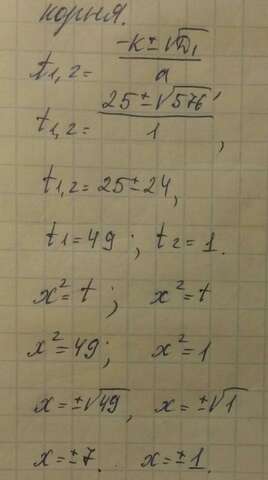 корня.
t1,2 = (-k ± √D1) / a
t1,2 = (25 ± √576) / 1,
t1,2 = 25 ± 24,
t1 = 49 ; t2 = 1.
x² = t ; x² = t
x² = 49; x² = 1
x = ±√49, x = ±√1
x = ±7. x = ±1.